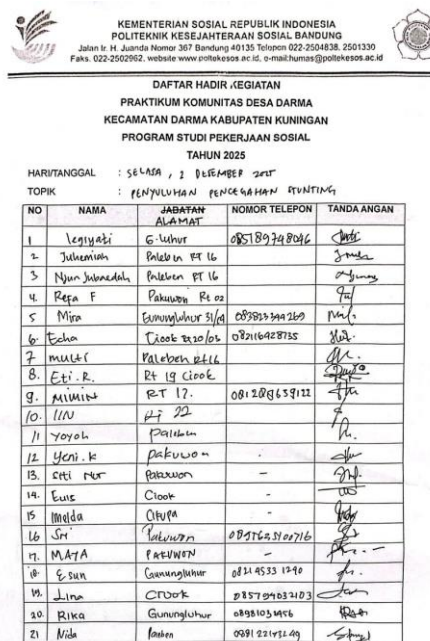 KEMENTERIAN SOSIAL REPUBLIK INDONESIA
POLITEKNIK KESEJAHTERAAN SOSIAL BANDUNG
Jalan Ir. H. Juanda Nomor 367 Bandung 40135 Telepon 022-2504838, 2501330
Faks. 022-2502962, website www.poltekesos.ac.id, e-mail:humas@poltekesos.ac.id
DAFTAR HADIR KEGIATAN
PRAKTIKUM KOMUNITAS DESA DARMA
KECAMATAN DARMA KABUPATEN KUNINGAN
PROGRAM STUDI PEKERJAAN SOSIAL
TAHUN 2025
HARI/TANGGAL : SELASA, 2 DESEMBER 2025
TOPIK : PENYULUHAN PENCEGAHAN STUNTING
NO NAMA JABATAN ALAMAT NOMOR TELEPON TANDA ANGAN
1 legiyati G. luhur 085789748046
2 Juhemiah Paleben RT 16
3 Njun Paleben RT 16
4. Refa F Pakuwon Rt 02
5 Mira Gunungluhur
6. Echa Ciook 20/03 082116428735
7 multi Paleben Rt16
8. Eti. R. Rt 19 Ciook
9. MIMIN RT 17. 081289639122
10. IIN RT 22
11 Yoyoh Paleben
12 Yeni. K pakuwon -
13. Siti Nur Pakuwon -
14. Euis Ciook -
15 Imelda
16 Sri Pakuwon
17. MAYA PAKUWON -
18. Esun Gunungluhur 0821 4533 1290
19. Lina Ciook 085794032103
20. Rika Gunungluhur
21 Nida Paleben